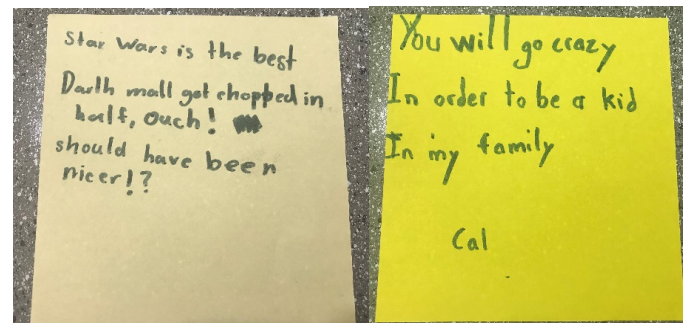 Star Wars is the best
Darth mall got chopped in
half, ouch!
should have been
nicer!?
You will go crazy
In order to be a kid
In my family
Cal